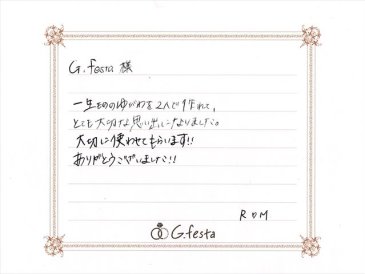 G.festa 様
一生ものの ゆびわを 2人で 作れて、
とても 大切な 思い出に なりました。
大切に 使わせて もらいます!!
ありがとうございました!!
R ♡ M
G.festa